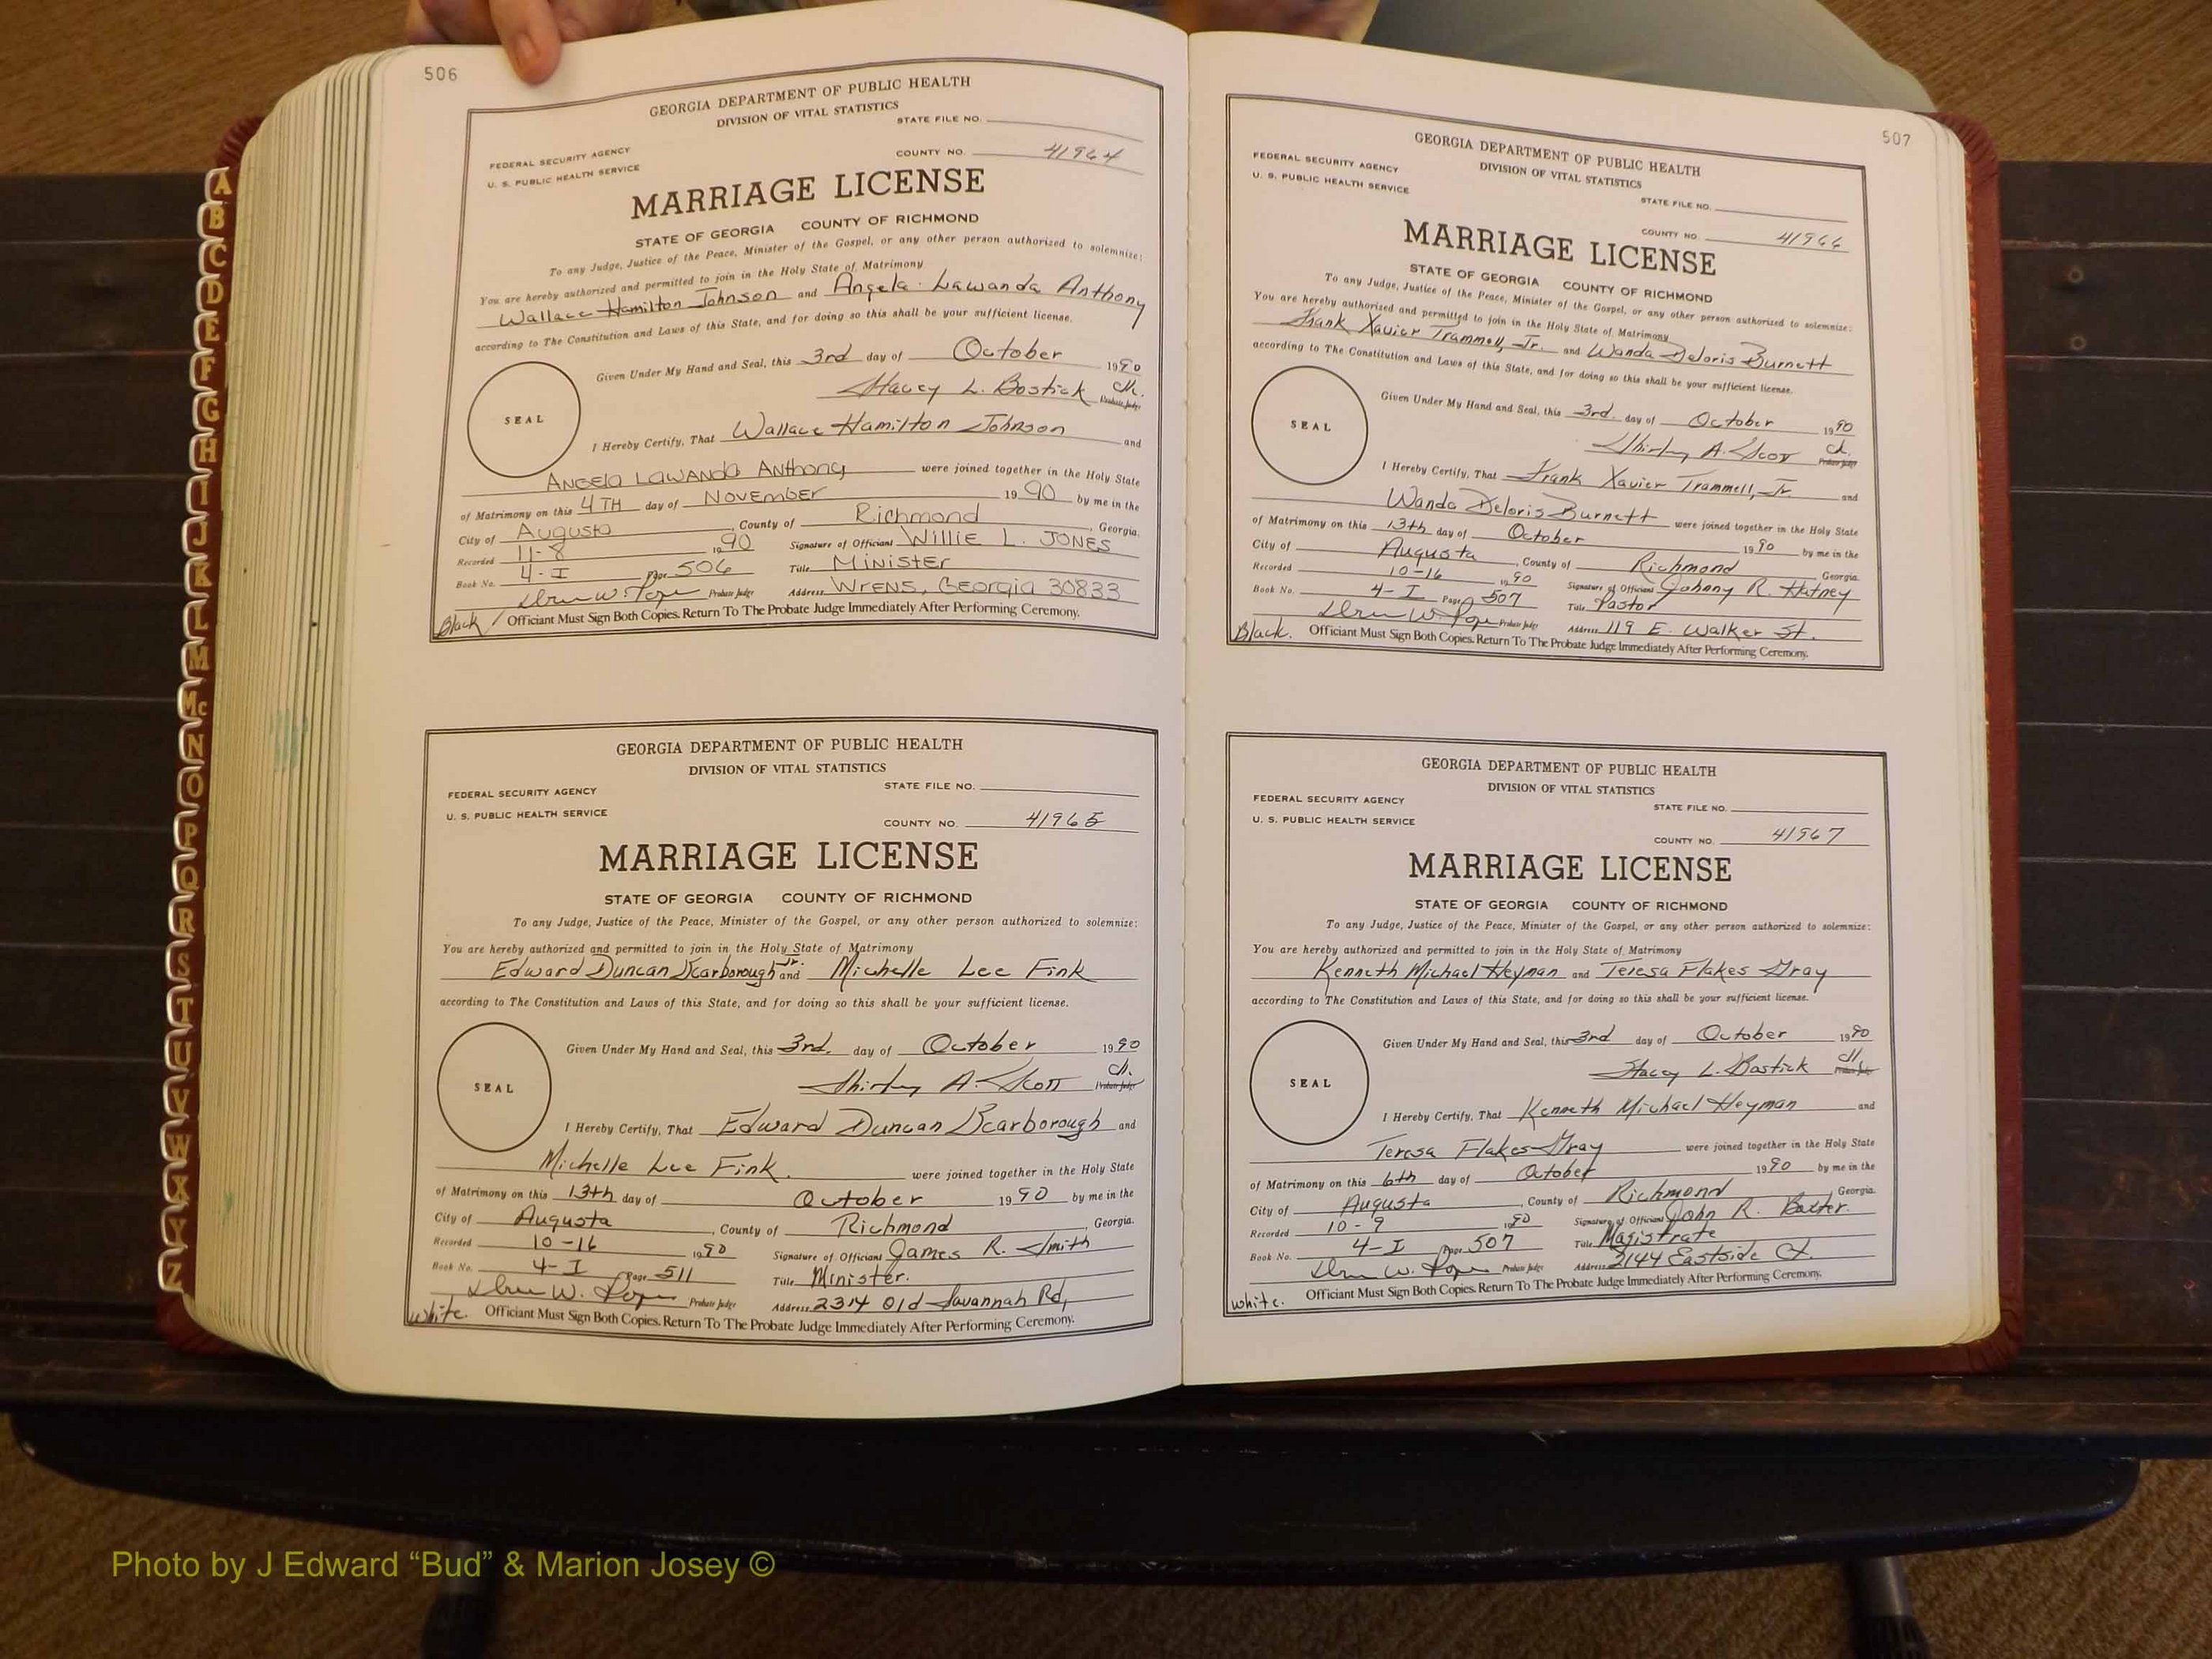 506
GEORGIA DEPARTMENT OF PUBLIC HEALTH
DIVISION OF VITAL STATISTICS
STATE FILE NO.
FEDERAL SECURITY AGENCY
COUNTY NO. 41964
U. S. PUBLIC HEALTH SERVICE
MARRIAGE LICENSE
STATE OF GEORGIA COUNTY OF RICHMOND
To any Judge, Justice of the Peace, Minister of the Gospel, or any other person authorized to solemnize:
You are hereby authorized and permitted to join in the Holy State of Matrimony
Wallace Hamilton Johnson and Angela Lawanda Anthony
according to The Constitution and Laws of this State, and for doing so this shall be your sufficient license.
Given Under My Hand and Seal, this 3rd day of October 1990
Stacey L. Bostick Clk. Probate Judge
SEAL
I Hereby Certify, That Wallace Hamilton Johnson and
Angela Lawanda Anthony were joined together in the Holy State
of Matrimony on this 4TH day of November 1990 by me in the
City of Augusta, County of Richmond, Georgia.
Recorded 11-8 1990 Signature of Officiant Willie L. Jones
Book No. 4-I Page 506 Title Minister
Probate Judge Address Wrens, Georgia 30833
Black Officiant Must Sign Both Copies. Return To The Probate Judge Immediately After Performing Ceremony.
GEORGIA DEPARTMENT OF PUBLIC HEALTH
DIVISION OF VITAL STATISTICS
STATE FILE NO.
FEDERAL SECURITY AGENCY
U. S. PUBLIC HEALTH SERVICE
COUNTY NO. 41965
MARRIAGE LICENSE
STATE OF GEORGIA COUNTY OF RICHMOND
To any Judge, Justice of the Peace, Minister of the Gospel, or any other person authorized to solemnize:
You are hereby authorized and permitted to join in the Holy State of Matrimony
Edward Duncan Scarborough Jr. and Michelle Lee Fink
according to The Constitution and Laws of this State, and for doing so this shall be your sufficient license.
Given Under My Hand and Seal, this 3rd. day of October 1990
Shirley A. Scott Clk. Probate Judge
SEAL
I Hereby Certify, That Edward Duncan Scarborough and
Michelle Lee Fink. were joined together in the Holy State
of Matrimony on this 13th day of October 1990 by me in the
City of Augusta, County of Richmond, Georgia.
Recorded 10-16 1990 Signature of Officiant James R. Smith
Book No. 4-I Page 511 Title Minister.
Probate Judge Address 2314 Old Savannah Rd,
White. Officiant Must Sign Both Copies. Return To The Probate Judge Immediately After Performing Ceremony.
507
GEORGIA DEPARTMENT OF PUBLIC HEALTH
DIVISION OF VITAL STATISTICS
FEDERAL SECURITY AGENCY
U. S. PUBLIC HEALTH SERVICE
STATE FILE NO.
COUNTY NO. 41966
MARRIAGE LICENSE
STATE OF GEORGIA COUNTY OF RICHMOND
To any Judge, Justice of the Peace, Minister of the Gospel, or any other person authorized to solemnize:
You are hereby authorized and permitted to join in the Holy State of Matrimony
Frank Xavier Trammell, Jr. and Wanda Deloris Burnett
according to The Constitution and Laws of this State, and for doing so this shall be your sufficient license.
Given Under My Hand and Seal, this 3rd. day of October 1990
Shirley A. Scott Clk. Probate Judge
SEAL
I Hereby Certify, That Frank Xavier Trammell, Jr. and
Wanda Deloris Burnett were joined together in the Holy State
of Matrimony on this 13th day of October 1990 by me in the
City of Augusta, County of Richmond, Georgia.
Recorded 10-16 1990 Signature of Officiant Johnny R.
Book No. 4-I Page 507 Title Pastor
Probate Judge Address 119 E. Walker St.
Black. Officiant Must Sign Both Copies. Return To The Probate Judge Immediately After Performing Ceremony.
GEORGIA DEPARTMENT OF PUBLIC HEALTH
DIVISION OF VITAL STATISTICS
FEDERAL SECURITY AGENCY
STATE FILE NO.
U. S. PUBLIC HEALTH SERVICE
COUNTY NO. 41967
MARRIAGE LICENSE
STATE OF GEORGIA COUNTY OF RICHMOND
To any Judge, Justice of the Peace, Minister of the Gospel, or any other person authorized to solemnize:
You are hereby authorized and permitted to join in the Holy State of Matrimony
Kenneth Michael Heyman and Teresa Flakes Gray
according to The Constitution and Laws of this State, and for doing so this shall be your sufficient license.
Given Under My Hand and Seal, this 3rd day of October 1990
Stacey L. Bostick Clk. Probate Judge
SEAL
I Hereby Certify, That Kenneth Michael Heyman and
Teresa Flakes Gray were joined together in the Holy State
of Matrimony on this 6th day of October 1990 by me in the
City of Augusta, County of Richmond, Georgia.
Recorded 10-9 1990 Signature of Officiant John R. Baxter.
Book No. 4-I Page 507 Title Magistrate
Probate Judge Address 2144 Eastside Ct.
White. Officiant Must Sign Both Copies. Return To The Probate Judge Immediately After Performing Ceremony.
A
B
C
D
E
F
G
H
I
J
K
L
M
Mc
N
O
P
Q
R
S
T
U
V
W
X
Y
Z
Photo by J Edward “Bud” & Marion Josey ©